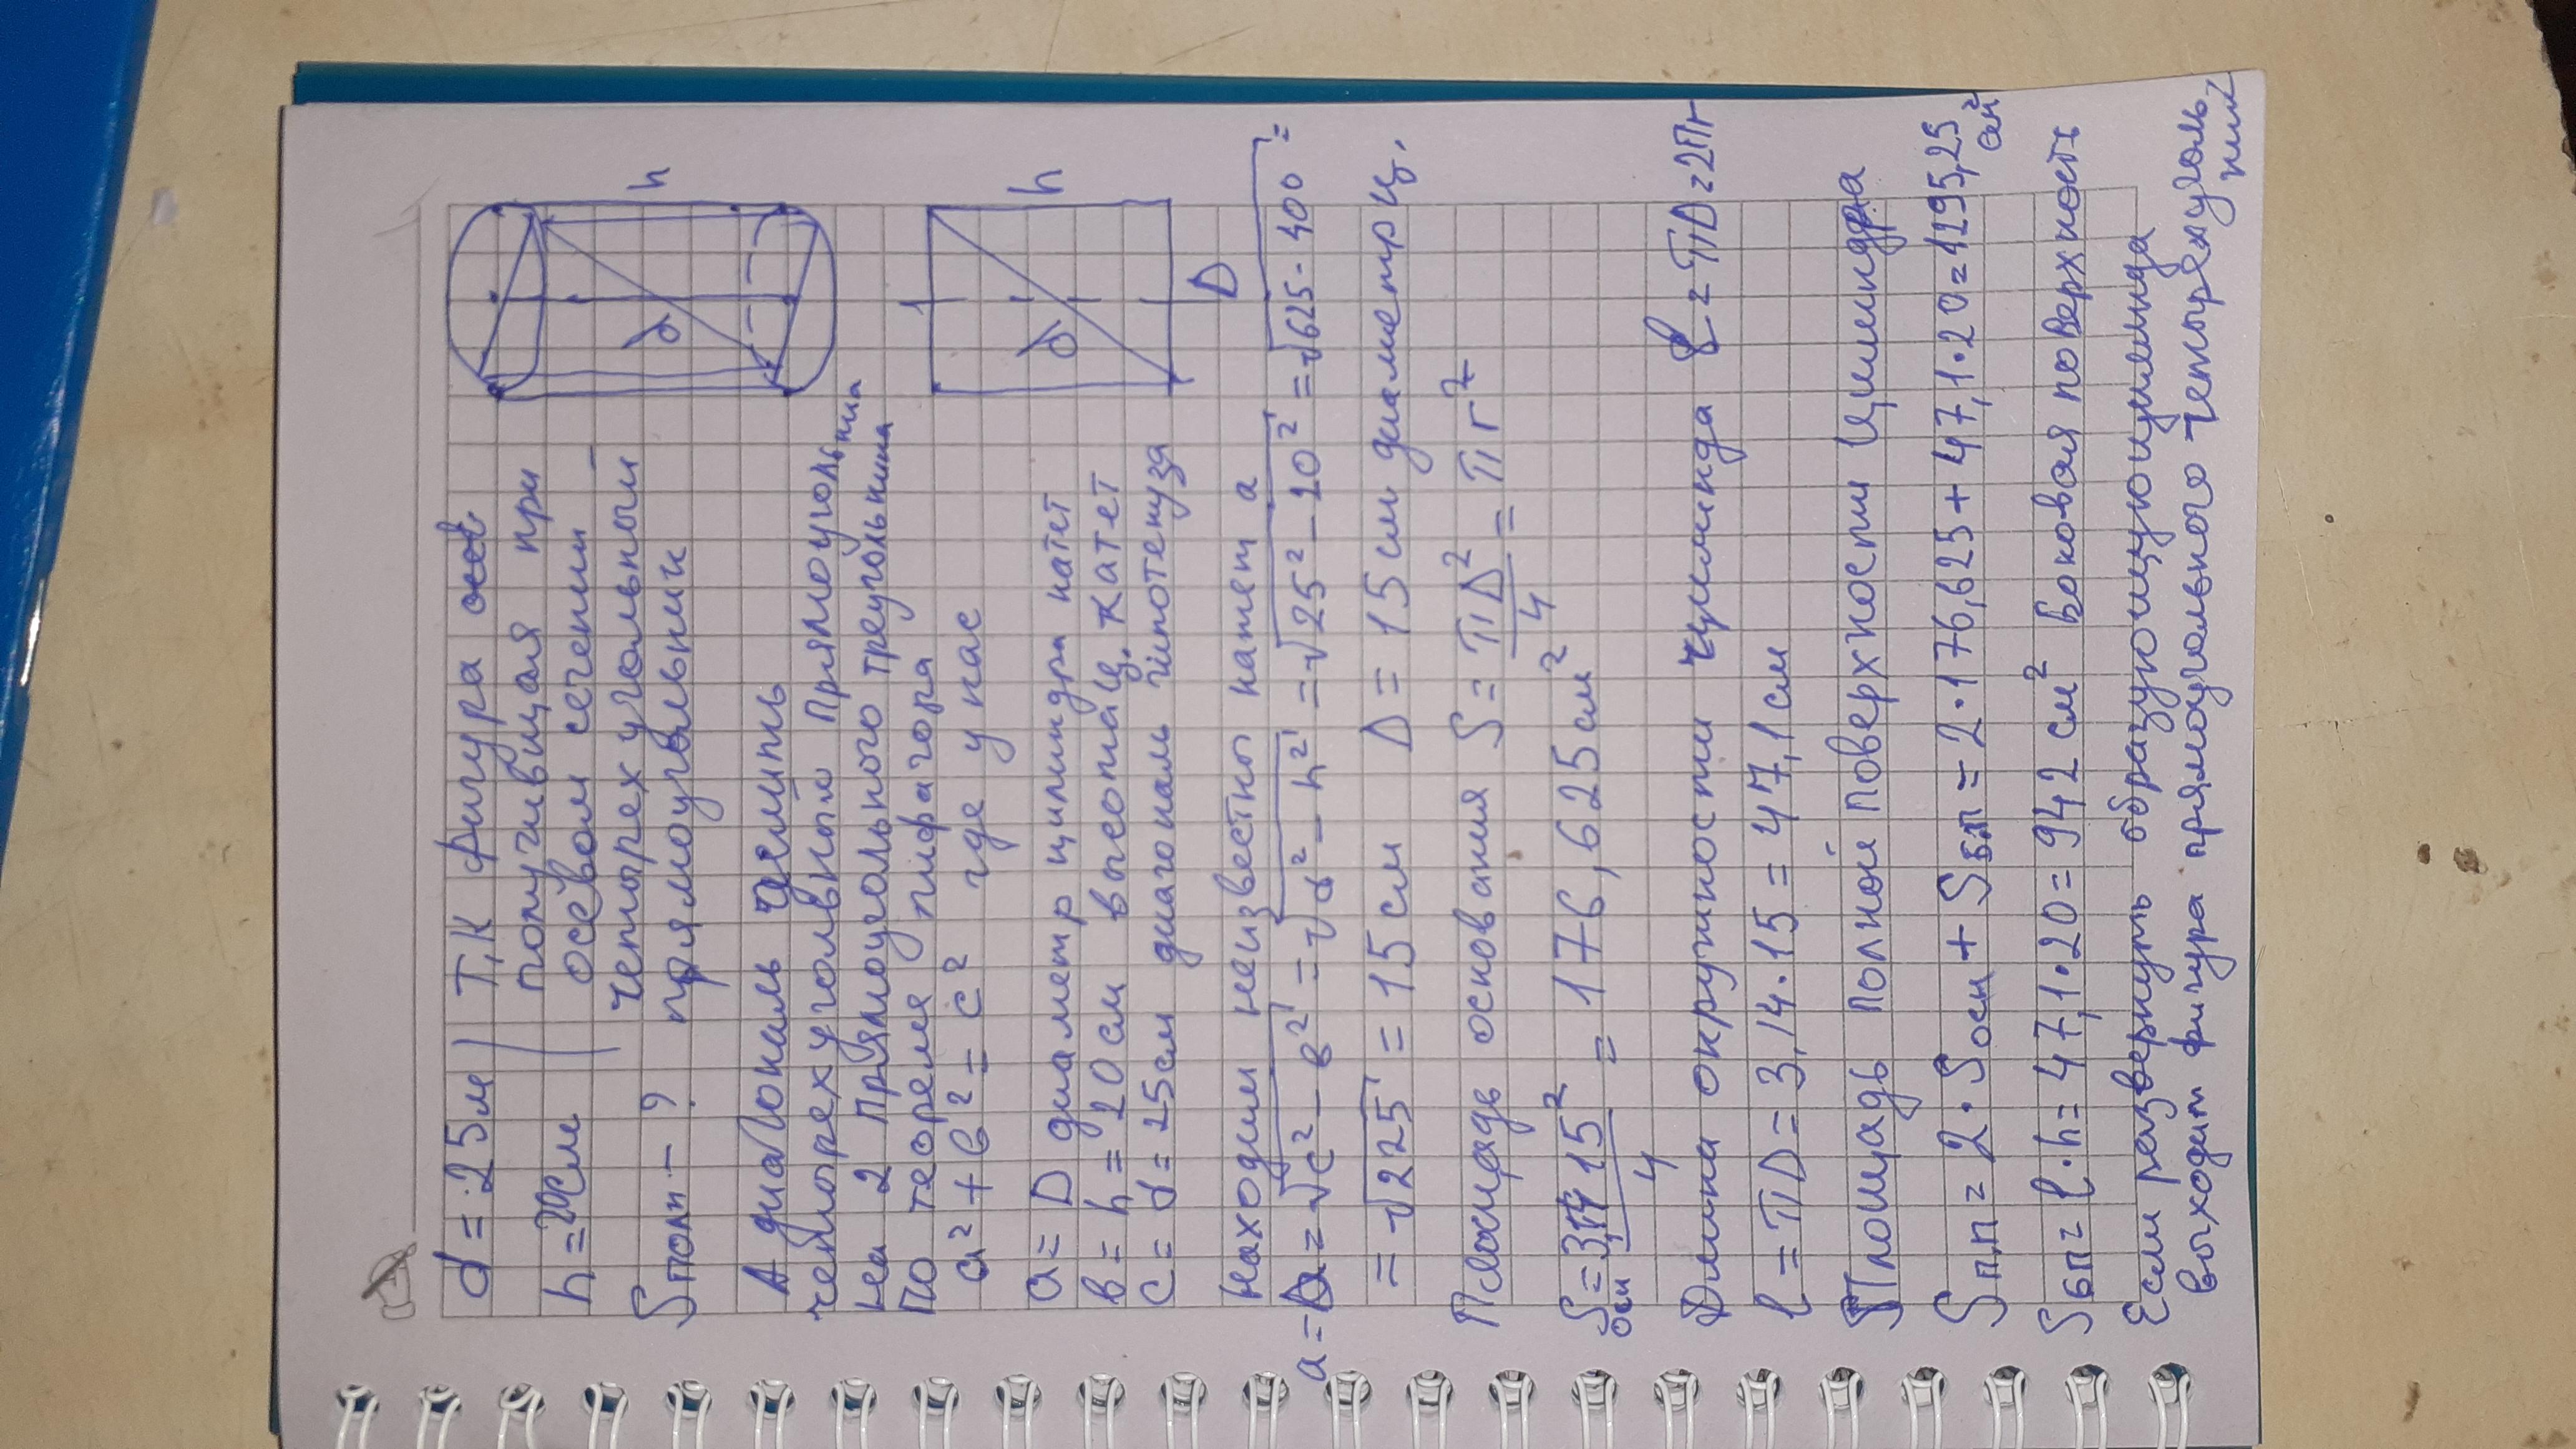 d = 25м
h = 20см
Sполн – ?
Т,К фигура осев
получившая при
осевом сечении –
четырехугольногом
прямоугольник
h
d
А диагональ делить
четырехугольный прямоугольника
на 2 прямоугольного треугольника
По теореме пифагора
a² + в² = c² где у нас
h
d
D
a = D диаметр цилиндра катет
в = h = 20см высота ц. катет
c = d = 25см диагональ гипотенуза
Находим неизвестный катет а
a = D = √c² – в² = √d² – h² = √25² – 20² = √625 - 400 =
= √225 = 15см D = 15 см диаметр ц.
Площадь основания S = πD²/4 = πr²
Sосн = 3,14 15²/4 = 176,625 см²
Длина окружности цилиндра ℓ = πD = 2πr
ℓ = πD = 3,14 · 15 = 47,1 см
Площадь полной поверхности цилиндра
Sп.п = 2 · Sосн + Sбп = 2 · 176,625 + 47,1 · 20 = 1295,25 см²
Sбп = ℓ · h = 47,1 · 20 = 942 см² боковая поверхность
Если развернуть образующую цилинда
выходит фигура прямоугольного четырехуголь
ник